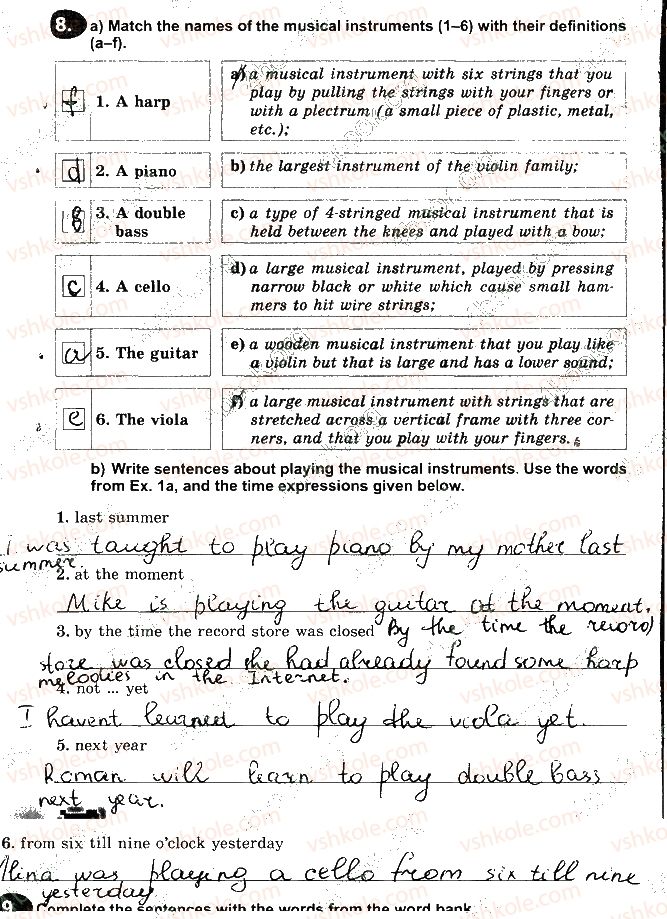 8. a) Match the names of the musical instruments (1–6) with their definitions
(a–f).
f 1. A harp
a) a musical instrument with six strings that you
play by pulling the strings with your fingers or
with a plectrum (a small piece of plastic, metal,
etc.);
d 2. A piano
b) the largest instrument of the violin family;
3. A double
bass
c) a type of 4-stringed musical instrument that is
held between the knees and played with a bow;
c 4. A cello
d) a large musical instrument, played by pressing
narrow black or white which cause small ham-
mers to hit wire strings;
a 5. The guitar
e) a wooden musical instrument that you play like
a violin but that is large and has a lower sound;
e 6. The viola
f) a large musical instrument with strings that are
stretched across a vertical frame with three cor-
ners, and that you play with your fingers.
b) Write sentences about playing the musical instruments. Use the words
from Ex. 1a, and the time expressions given below.
1. last summer
I was taught to play piano by my mother last
summer
2. at the moment
Mike is playing the guitar at the moment.
3. by the time the record store was closed By the time the record
store was closed she had already found some harp
melodies in the Internet.
4. not ... yet
I havent learned to play the viola yet.
5. next year
Roman will learn to play double bass
next year.
6. from six till nine o'clock yesterday
Alina was playing a cello from six till nine
yesterday
9. Complete the sentences with the words from the word bank
vshkole.com